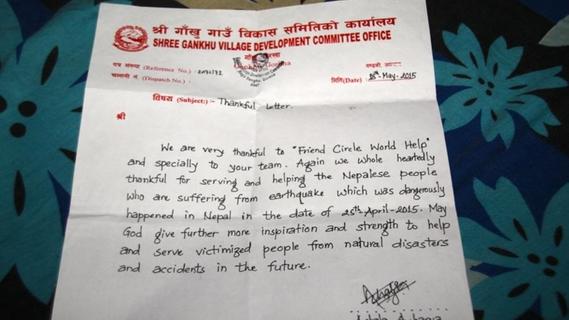 श्री गाँखु गाउँ विकास समितिको कार्यालय
SHREE GANKHU VILLAGE DEVELOPMENT COMMITTEE OFFICE
पत्र संख्या (Reference No.) :
चलानी नं. (Dispatch No.) :
मिति (Date) 28th-May-2015
विषय (Subject:) :- Thankful Letter.
श्री
We are very thankful to "Friend Circle World Help"
and specially to your team. Again we whole heartedly
thankful for serving and helping the Nepalese people
who are suffering from earthquake which was dangerously
happened in Nepal in the date of 25th April-2015. May
God give further more inspiration and strength to help
and serve victimized people from natural disasters
and accidents in the future.